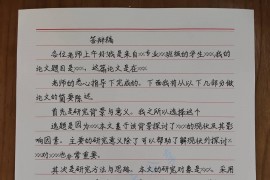 答辩稿
各位老师上午好!我是来自××专业××班级的学生××,我的
论文题目是×××。这篇论文是在×××
老师的悉心指导下完成的。下面我将从以下几部分做
论文的简要陈述。
首先是研究背景与意义。我之所以选择这个
选题是因为×××本文基于该背景探讨了×××的现状及其影
响因素。主要的研究意义除了可以帮助了解现状外探讨×
××对×××也非常重要。
其次是研究方法与思路。本文的研究对象是×××。采用